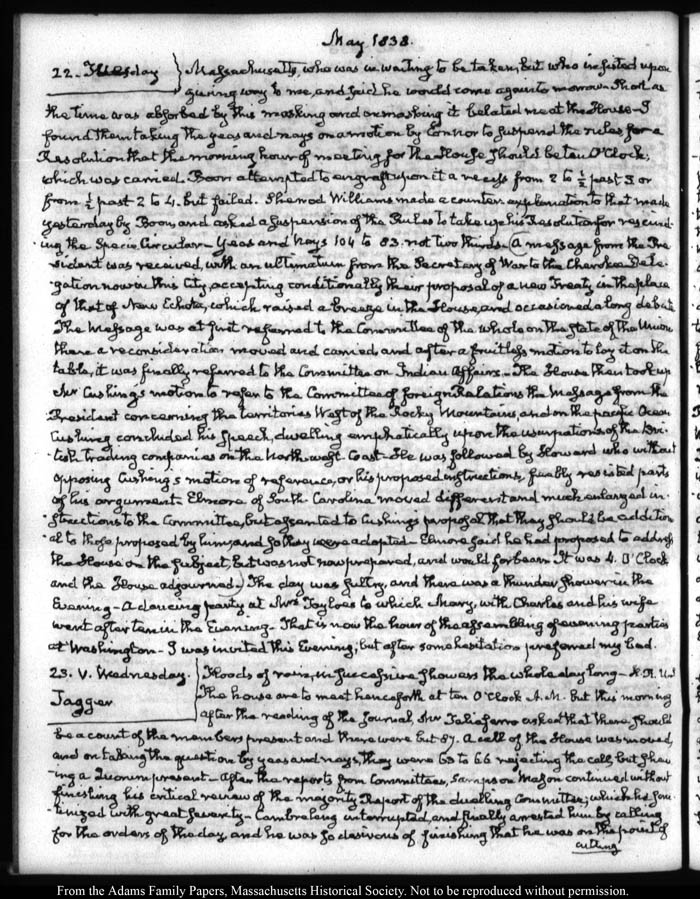 May 1838.
22. Tuesday } Massachusetts, who was in waiting to be taken, but who insisted upon
giving way to me, and said he would come again to morrow. That as
the time was absorbed by this masking and unmasking it belated me at the House - I
found them taking the yeas and nays on a motion by Connor to suspend the rules for a
Resolution that the morning hour of meeting for the House should be ten O'Clock;
which was carried. Boon attempted to engraft upon it a recess from 2 to ½ past 3 or
from ½ past 2 to 4. but failed. Sherrod Williams made a counter explanation to that made
yesterday by Boon, and asked a suspension of the Rules to take up his Resolution for rescind-
ing the Specie Circular - Yeas and Nays 104 to 83. not two thirds - (A message from the Pre-
sident was received, with an ultimatum from the Secretary of War to the Cherokee Dele-
gation now in this City, accepting conditionally their proposal of a new Treaty in the place
of that of New Echota, which raised a breeze in the House, and occasioned a long debate
The Message was at first referred to the Committee of the whole on the state of the Union
there a reconsideration moved and carried and after a fruitless motion to lay it on the
table, it was finally referred to the Committee on Indian Affairs. - The House then took up
Mr Cushing's motion to refer to the Committee of foreign Relations the Message from the
President concerning the territories West of the Rocky Mountains and on the pacific Ocean
Cushing concluded his Speech, dwelling emphatically upon the usurpations of the Bri-
tish trading companies on the North-west Coast - He was followed by Howard who without
opposing Cushing's motion of reference, or his proposed instructions, finally resisted parts
of his argument - Elmore of South Carolina moved different and much enlarged in-
structions to the Committee, but assented to Cushing's proposal that they should be addition-
al to those proposed by him; and so they were adopted - Elmore said he had proposed to address
the House on the subject, but was not now prepared, and would forbear - It was 4. O'Clock
and the House adjourned.) The day was sultry, and there was a thunder shower in the
Evening - A dancing party at Mrs Tayloe's to which Mary, with Charles and his wife
went after ten in the Evening - That is now the hour of the assembling of evening parties
at Washington - I was invited this Evening; but after some hesitation preferred my bed.
23. V. Wednesday. } Floods of rain, in successive showers the whole day long - H. R. U.S.
Jagger The house are to meet henceforth at ten O'Clock A.M. but this morning
after the reading of the Journal, Mr Taliaferro asked that there should
be a count of the members present and there were but 87. A call of the House was moved,
and on taking the question by yeas and nays, they were 65 to 66 rejecting the call, but shew-
ing a Quorum present - After the reports from Committees, Sampson Mason continued without
finishing his critical review of the majority Report of the duelling Committee; which he
with great severity - Cambreleng interrupted, and finally arrested him by calling
for the orders of the day, and he was so desirous of finishing that he was on the point of
cutting
From the Adams Family Papers, Massachusetts Historical Society. Not to be reproduced without permission.